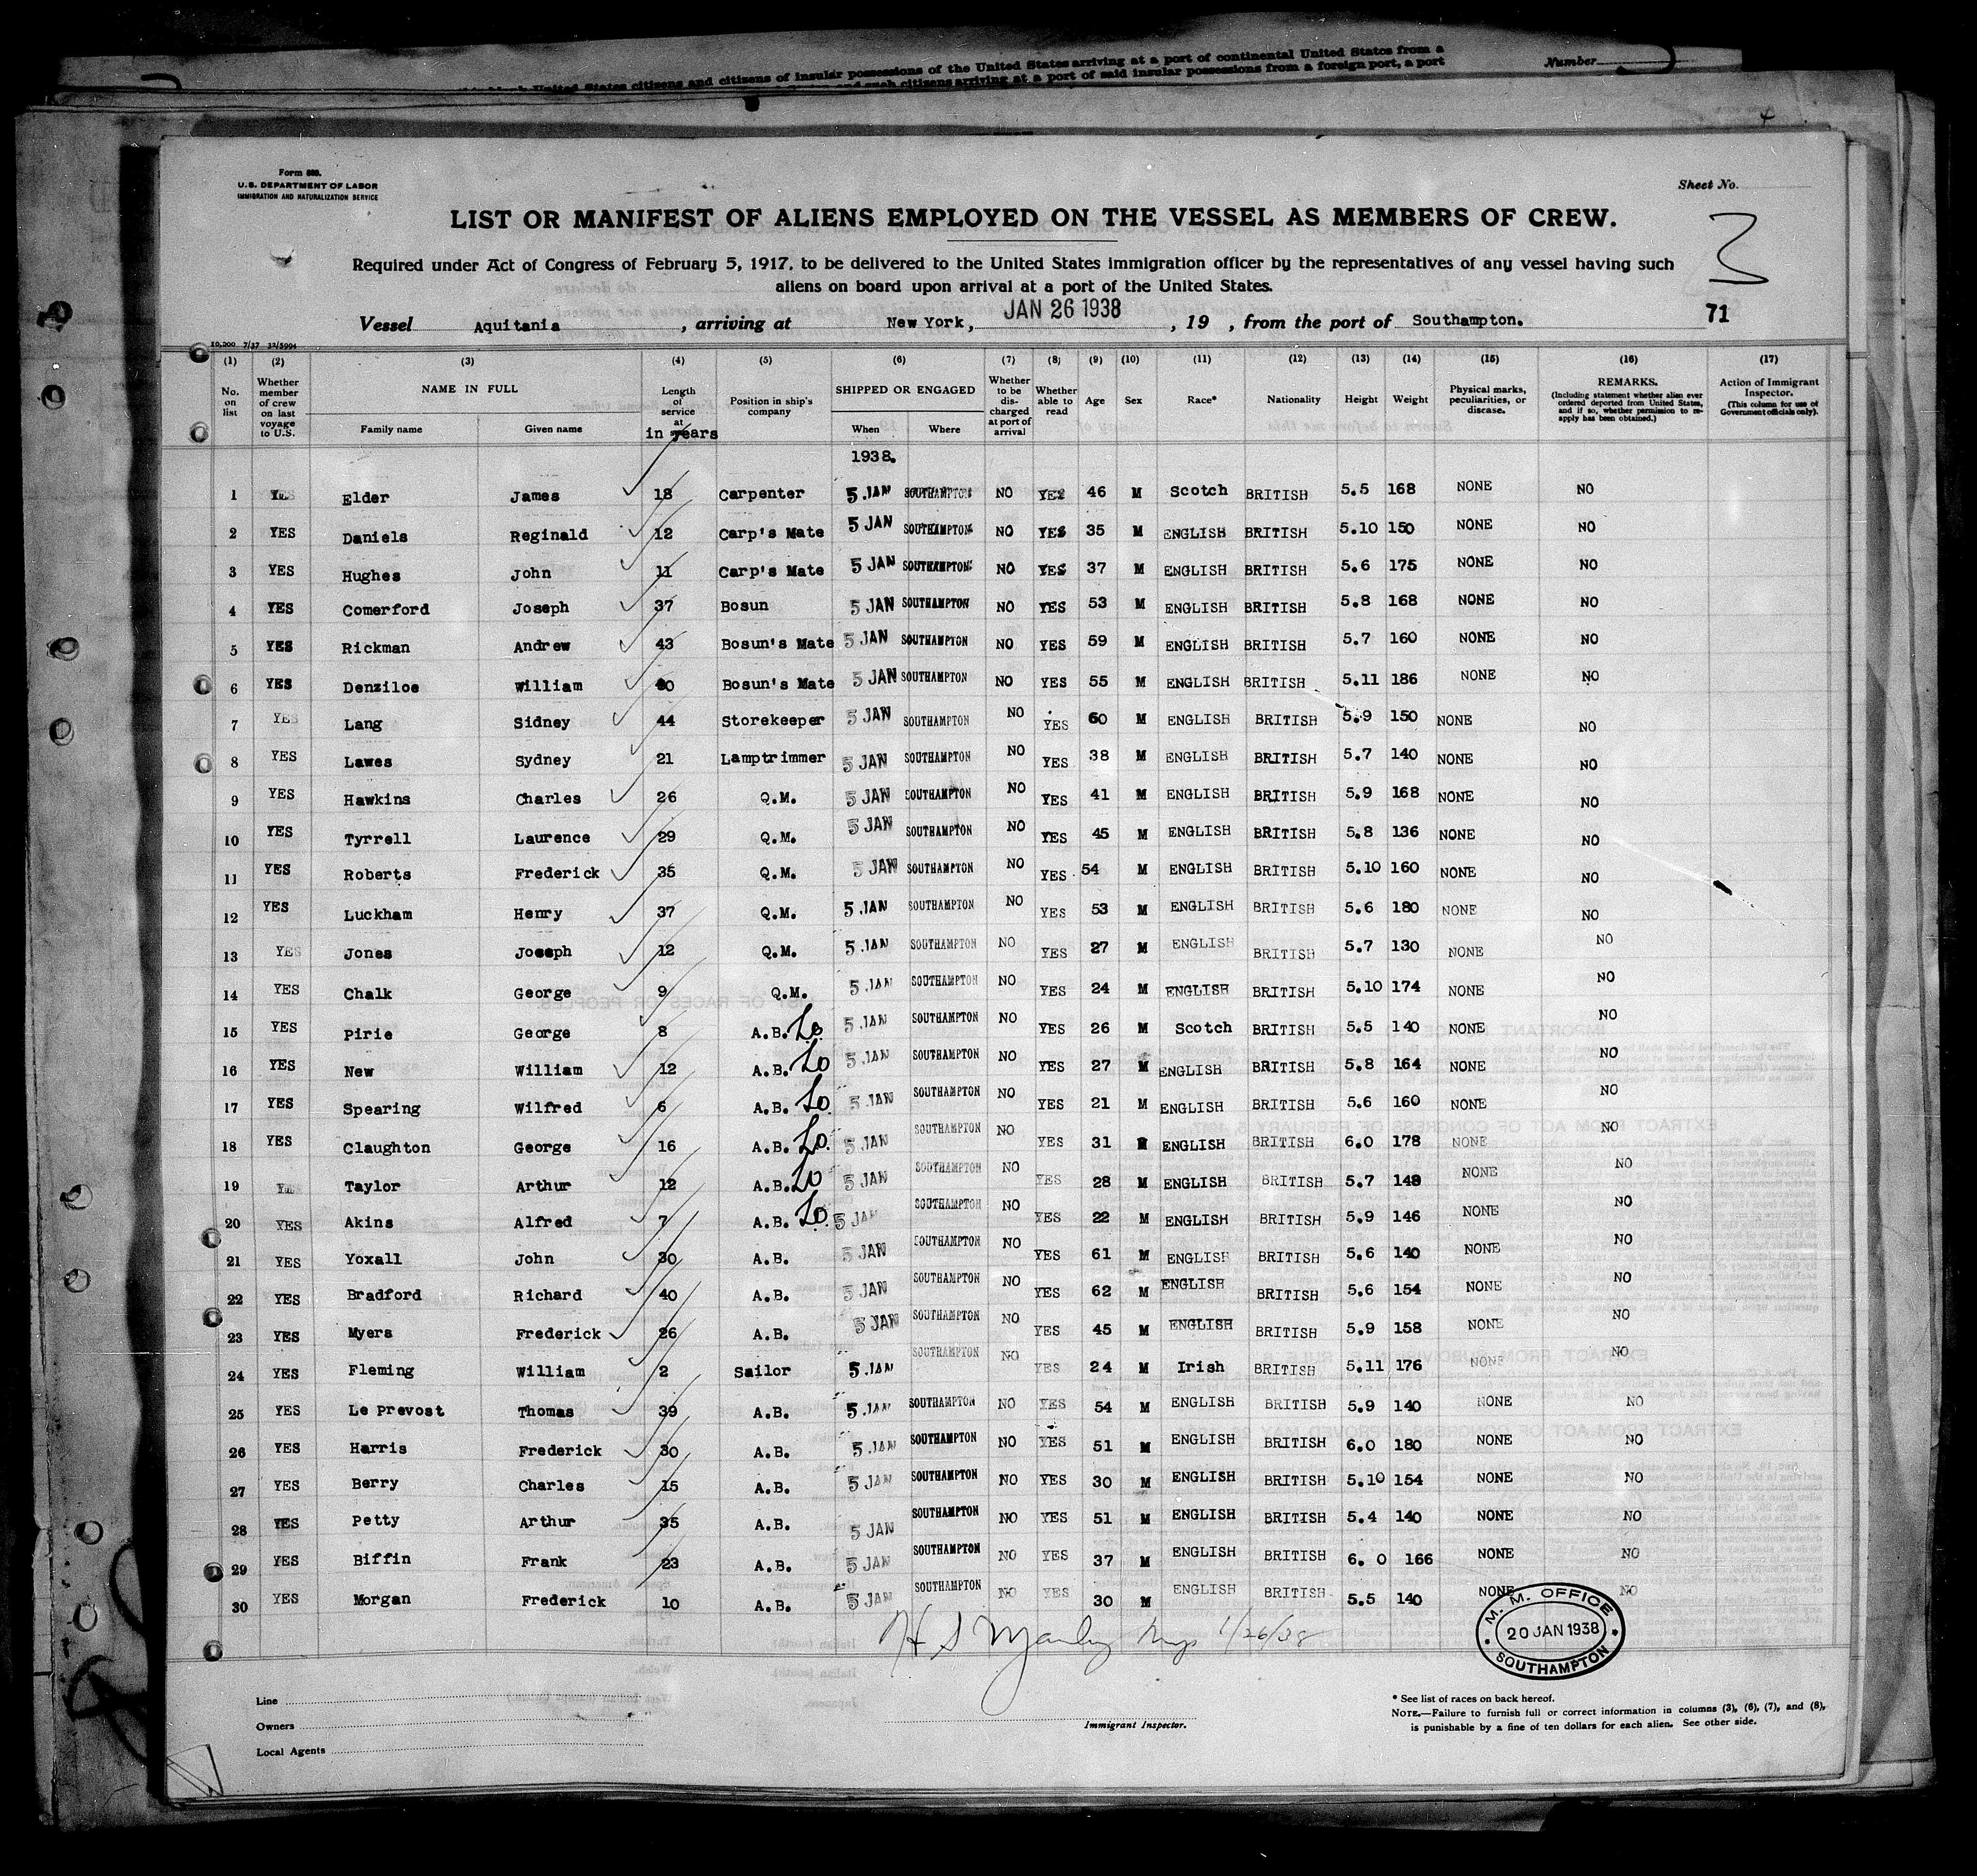 United States citizens and citizens of insular possessions of the United States arriving at a port of continental United States from a
and such citizens arriving at a port of said insular possessions from a foreign port, a port
Number
Form 680.
U.S. DEPARTMENT OF LABOR
IMMIGRATION AND NATURALIZATION SERVICE
Sheet No.
3
LIST OR MANIFEST OF ALIENS EMPLOYED ON THE VESSEL AS MEMBERS OF CREW.
Required under Act of Congress of February 5, 1917, to be delivered to the United States immigration officer by the representatives of any vessel having such
aliens on board upon arrival at a port of the United States.
Vessel Aquitania, arriving at New York, JAN 26 1938, 19 , from the port of Southampton.
71
10,200 7/37 32/5994
(1) (2) (3) (4) (5) (6) (7) (8) (9) (10) (11) (12) (13) (14) (15) (16) (17)
No. on list
Whether member of crew on last voyage to U.S.
NAME IN FULL
Family name Given name
Length of service at in years
Position in ship's company
SHIPPED OR ENGAGED
When Where
Whether to be discharged at port of arrival
Whether able to read
Age
Sex
Race*
Nationality
Height
Weight
Physical marks, peculiarities, or disease.
REMARKS.
(Including statement whether alien ever ordered deported from United States, and if so, whether permission to reapply has been obtained.)
Action of Immigrant Inspector.
(This column for use of Government officials only).
1938.
1 YES Elder James 18 Carpenter 5 JAN SOUTHAMPTON NO YES 46 M Scotch BRITISH 5.5 168 NONE NO
2 YES Daniels Reginald 12 Carp's Mate 5 JAN SOUTHAMPTON NO YES 35 M ENGLISH BRITISH 5.10 150 NONE NO
3 YES Hughes John 11 Carp's Mate 5 JAN SOUTHAMPTON NO YES 37 M ENGLISH BRITISH 5.6 175 NONE NO
4 YES Comerford Joseph 37 Bosun 5 JAN SOUTHAMPTON NO YES 53 M ENGLISH BRITISH 5.8 168 NONE NO
5 YES Rickman Andrew 43 Bosun's Mate 5 JAN SOUTHAMPTON NO YES 59 M ENGLISH BRITISH 5.7 160 NONE NO
6 YES Denziloe William 40 Bosun's Mate 5 JAN SOUTHAMPTON NO YES 55 M ENGLISH BRITISH 5.11 186 NONE NO
7 YES Lang Sidney 44 Storekeeper 5 JAN SOUTHAMPTON NO YES 60 M ENGLISH BRITISH 5.9 150 NONE NO
8 YES Lawes Sydney 21 Lamptrimmer 5 JAN SOUTHAMPTON NO YES 38 M ENGLISH BRITISH 5.7 140 NONE NO
9 YES Hawkins Charles 26 Q.M. 5 JAN SOUTHAMPTON NO YES 41 M ENGLISH BRITISH 5.9 168 NONE NO
10 YES Tyrrell Laurence 29 Q.M. 5 JAN SOUTHAMPTON NO YES 45 M ENGLISH BRITISH 5.8 136 NONE NO
11 YES Roberts Frederick 35 Q.M. 5 JAN SOUTHAMPTON NO YES 54 M ENGLISH BRITISH 5.10 160 NONE NO
12 YES Luckham Henry 37 Q.M. 5 JAN SOUTHAMPTON NO YES 53 M ENGLISH BRITISH 5.6 180 NONE NO
13 YES Jones Joseph 12 Q.M. 5 JAN SOUTHAMPTON NO YES 27 M ENGLISH BRITISH 5.7 130 NONE NO
14 YES Chalk George 9 Q.M. 5 JAN SOUTHAMPTON NO YES 24 M ENGLISH BRITISH 5.10 174 NONE NO
15 YES Pirie George 8 A.B. Lo 5 JAN SOUTHAMPTON NO YES 26 M Scotch BRITISH 5.5 140 NONE NO
16 YES New William 12 A.B. Lo 5 JAN SOUTHAMPTON NO YES 27 M ENGLISH BRITISH 5.8 164 NONE NO
17 YES Spearing Wilfred 6 A.B. Lo 5 JAN SOUTHAMPTON NO YES 21 M ENGLISH BRITISH 5.6 160 NONE NO
18 YES Claughton George 16 A.B. Lo 5 JAN SOUTHAMPTON NO YES 31 M ENGLISH BRITISH 6.0 178 NONE NO
19 YES Taylor Arthur 12 A.B. Lo 5 JAN SOUTHAMPTON NO YES 28 M ENGLISH BRITISH 5.7 148 NONE NO
20 YES Akins Alfred 7 A.B. Lo 5 JAN SOUTHAMPTON NO YES 22 M ENGLISH BRITISH 5.9 146 NONE NO
21 YES Yoxall John 30 A.B. 5 JAN SOUTHAMPTON NO YES 61 M ENGLISH BRITISH 5.6 140 NONE NO
22 YES Bradford Richard 40 A.B. 5 JAN SOUTHAMPTON NO YES 62 M ENGLISH BRITISH 5.6 154 NONE NO
23 YES Myers Frederick 26 A.B. 5 JAN SOUTHAMPTON NO YES 45 M ENGLISH BRITISH 5.9 158 NONE NO
24 YES Fleming William 2 Sailor 5 JAN SOUTHAMPTON NO YES 24 M Irish BRITISH 5.11 176 NONE NO
25 YES Le Prevost Thomas 39 A.B. 5 JAN SOUTHAMPTON NO YES 54 M ENGLISH BRITISH 5.9 140 NONE NO
26 YES Harris Frederick 30 A.B. 5 JAN SOUTHAMPTON NO YES 51 M ENGLISH BRITISH 6.0 180 NONE NO
27 YES Berry Charles 15 A.B. 5 JAN SOUTHAMPTON NO YES 30 M ENGLISH BRITISH 5.10 154 NONE NO
28 YES Petty Arthur 35 A.B. 5 JAN SOUTHAMPTON NO YES 51 M ENGLISH BRITISH 5.4 140 NONE NO
29 YES Biffin Frank 23 A.B. 5 JAN SOUTHAMPTON NO YES 37 M ENGLISH BRITISH 6. 0 166 NONE NO
30 YES Morgan Frederick 10 A.B. 5 JAN SOUTHAMPTON NO YES 30 M ENGLISH BRITISH 5.5 140 NONE NO
1/26/38
M. M. OFFICE
20 JAN 1938
SOUTHAMPTON
Line
Owners
Local Agents
Immigrant Inspector.
* See list of races on back hereof.
NOTE.—Failure to furnish full or correct information in columns (3), (6), (7), and (8),
is punishable by a fine of ten dollars for each alien. See other side.